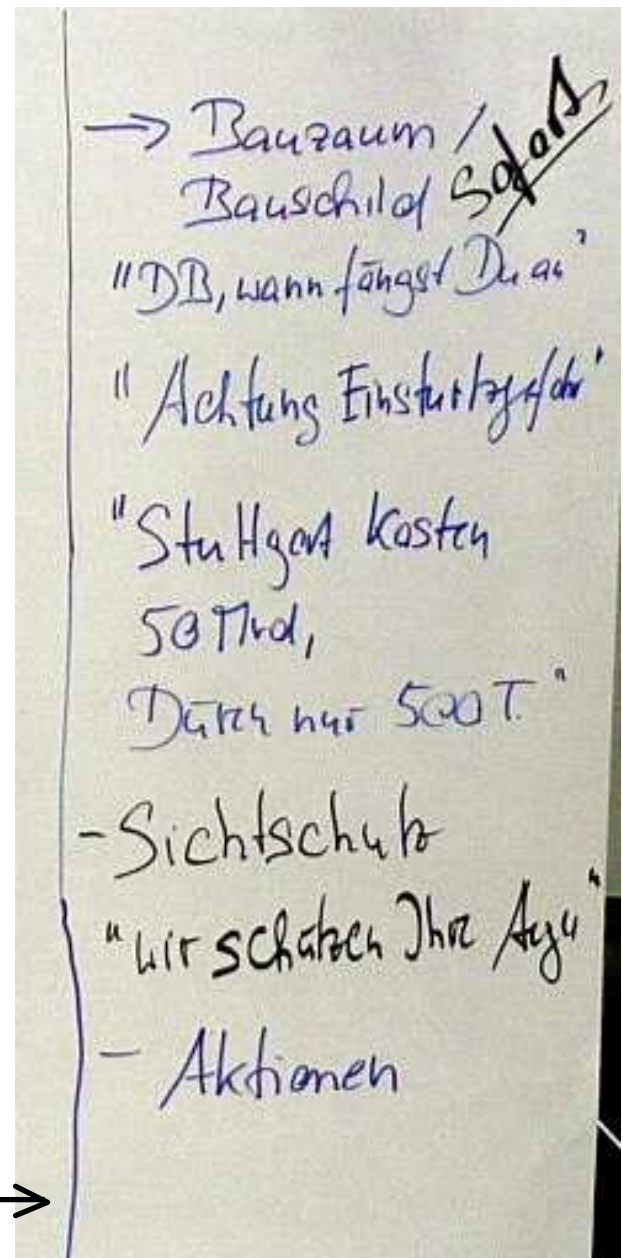 → Bauzaum /
Bauschild Sofort
"DB, wann fängst Du an"
"Achtung Einsturtzgefahr"
"Stuttgart Kosten
50 Mrd,
Düren nur 500 T."
- Sichtschutz
"wir schützen Ihre Augen"
- Aktionen